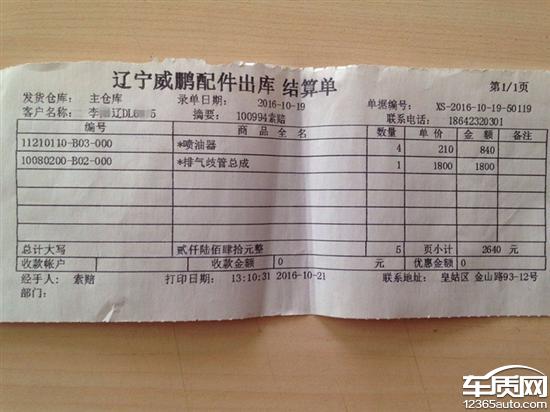 辽宁威鹏配件出库 结算单
第1/1页
发货仓库: 主仓库 录单日期: 2016-10-19 单据编号: XS-2016-10-19-50119
客户名称: 李 辽DL6 5 摘要: 100994索赔 联系电话: 18642320301
编号 商品全名 数量 单价 金额 备注
11210110-B03-000 *喷油器 4 210 840
10080200-B02-000 *排气歧管总成 1 1800 1800
总计大写 贰仟陆佰肆拾元整 5 页小计 2640 元
收款帐户 收款金额 0 元 优惠金额 0
经手人: 索赔 打印日期: 13:10:31 2016-10-21 联系地址: 皇姑区 金山路93-12号
部门:
车质网
12365auto.com